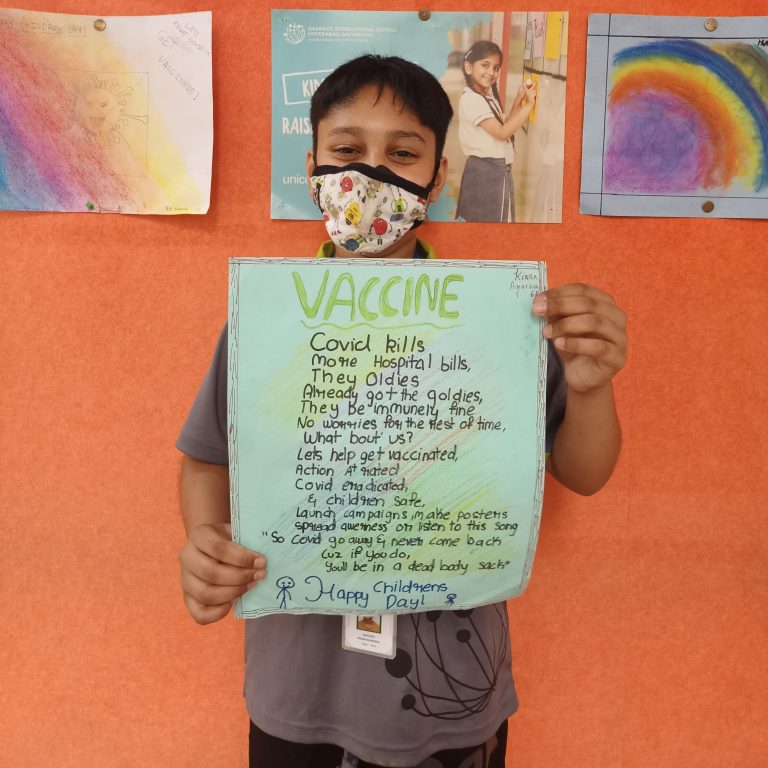 HAPPY CHILDREN DAY!
LETS
GET
VACCINATED!
OAKRIDGE INTERNATIONAL SCHOOL
KID
RAIS
unic
VACCINE
Kiaan
Agarwal
6A
Covid kills
More Hospital bills,
They Oldies
Already got the goldies,
They be immunely fine
No worries for the rest of time,
What bout' us?
Lets help get vaccinated,
Action A+ rated
Covid eradicated,
& children safe,
Launch campaigns, make posters
spread awerness or listen to this song
"So Covid go away & never come back
Cuz if you do,
You'll be in a dead body sack"
Happy Childrens
Day!